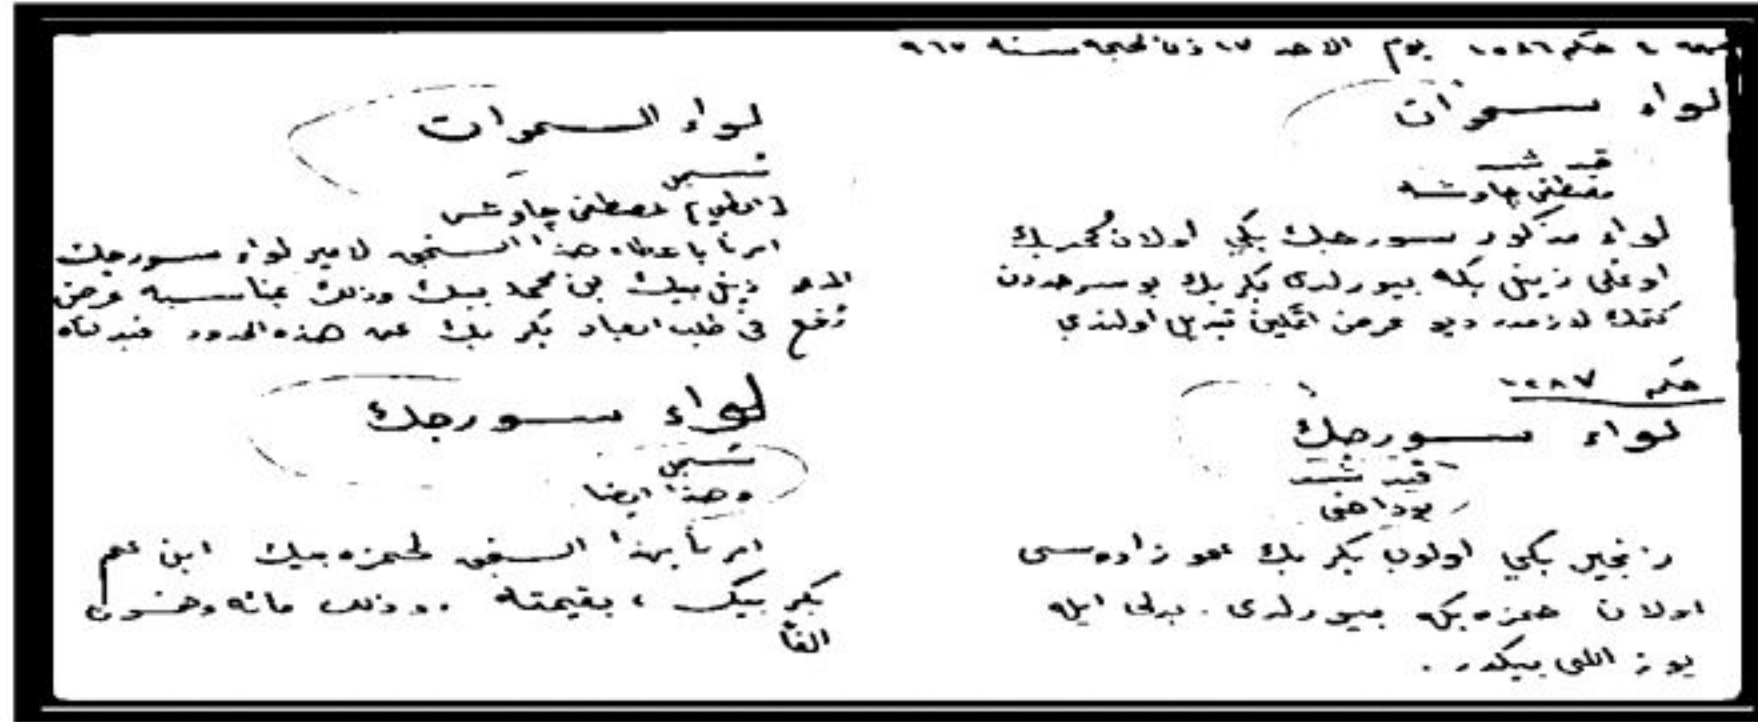 حكم ١٠٨٦ يوم الاحد ١٧ ذى الحجه سنه ٩٦٧
لواء سموات
قيد شد
مصطفى چاوشه
لواء مذكور سورجك بكي اولان محمد بك
اوغلى زينى بكه بيورلدى بكر بك بو سرحددن
كتمك لازمدر ديو عرض اتمكين تبديل اولندي
حكم ١٠٨٧
لواء سورجك
قيد شد
بوداخى
زنجير بكي اولوب بكر بك عمو زاده سى
اولان حمزه بكه بيورلدى . بدلى ايله
يوز اللى بيكدر .
لواء السموات
نسجل
[اعطي] مصطفى چاوش
امرنا باعطاء هذا السنجق لامير لواء سورجك
زينى بيك بن محمد بيك وذلك بمناسبة عرض
رفع في طلب ابعاد بكر بك عن هذه الحدود
لواء سورجك
نسجل
وهذا ايضا
امرنا بهذا السنجق لحمزه بيك ابن عم
بكر بيك ، بقيمته . وذلك مائه وخسون
الفا